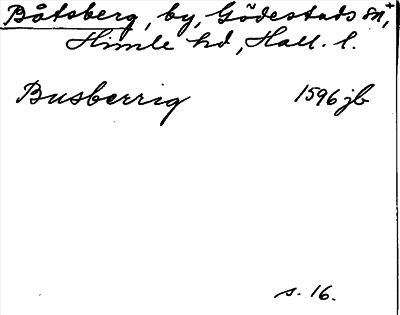 Båtsberg, by, Gödestads sn,+
Himle hd, Hall. l.
Busberrig 1596 jb
s. 16.